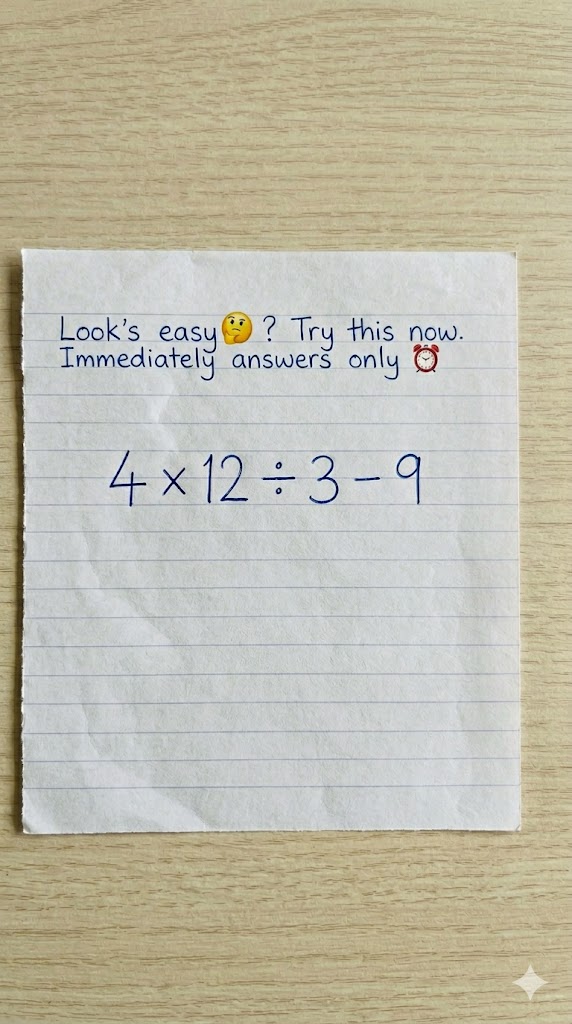 Look's easy🤔? Try this now.
Immediately answers only ⏰
4 × 12 ÷ 3 − 9